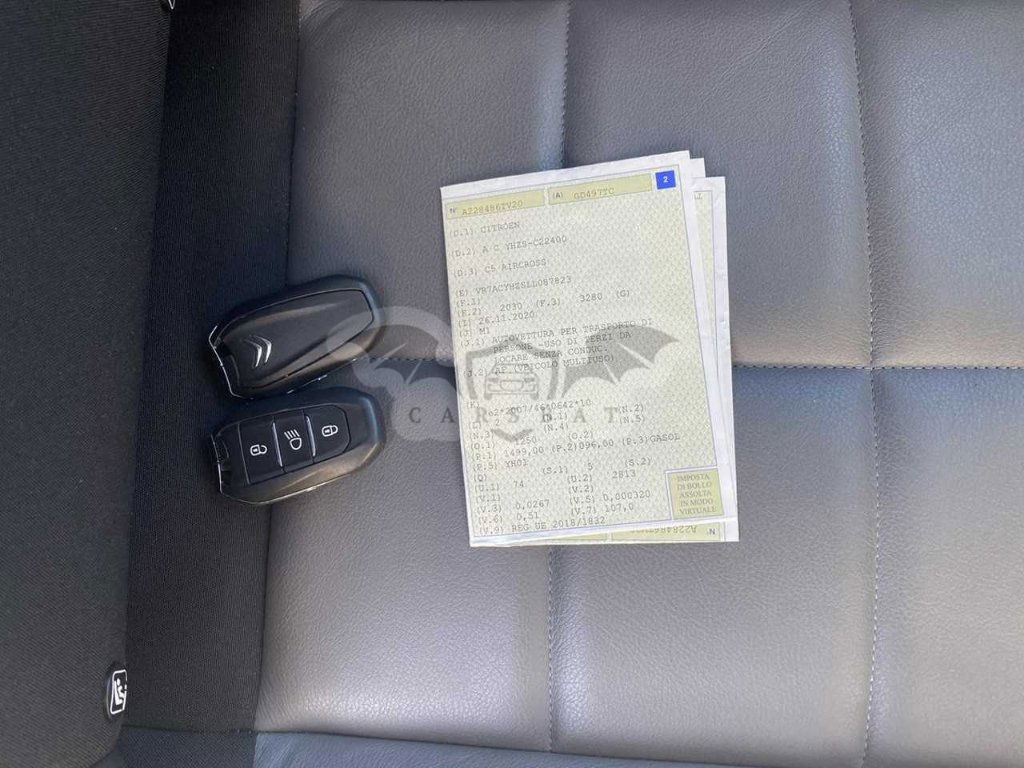 N° A228486TV20 (A) GD497TC 2
(D.1) CITROEN
(D.2) A C YHZS-C22400
(D.3) C5 AIRCROSS
(E) VR7ACYHZSLL087823
(F.1)
(F.2) 2030 (F.3) 3280 (G)
(I) 26.11.2020
(J) M1
(J.1) AUTOVETTURA PER TRASPORTO DI
PERSONE -USO DI TERZI DA
LOCARE SENZA CONDUC.
(J.2) AF (VEICOLO MULTIUSO)
CARSBAT
(K) e2*2007/46*0642*10
(N.1) (N.2)
(N.3) (N.4) (N.5)
(O.1) 1250 (O.2)
(P.1) 1499,00 (P.2) 096,00 (P.3) GASOL
(P.5) YH01
(Q) (S.1) 5 (S.2)
(U.1) 74 (U.2) 2813
(V.1) (V.2)
(V.3) 0,0267 (V.5) 0,000320
(V.6) 0.51 (V.7) 107,0
(V.9) REG UE 2018/1832
IMPOSTA
DI BOLLO
ASSOLTA
IN MODO
VIRTUALE
N°